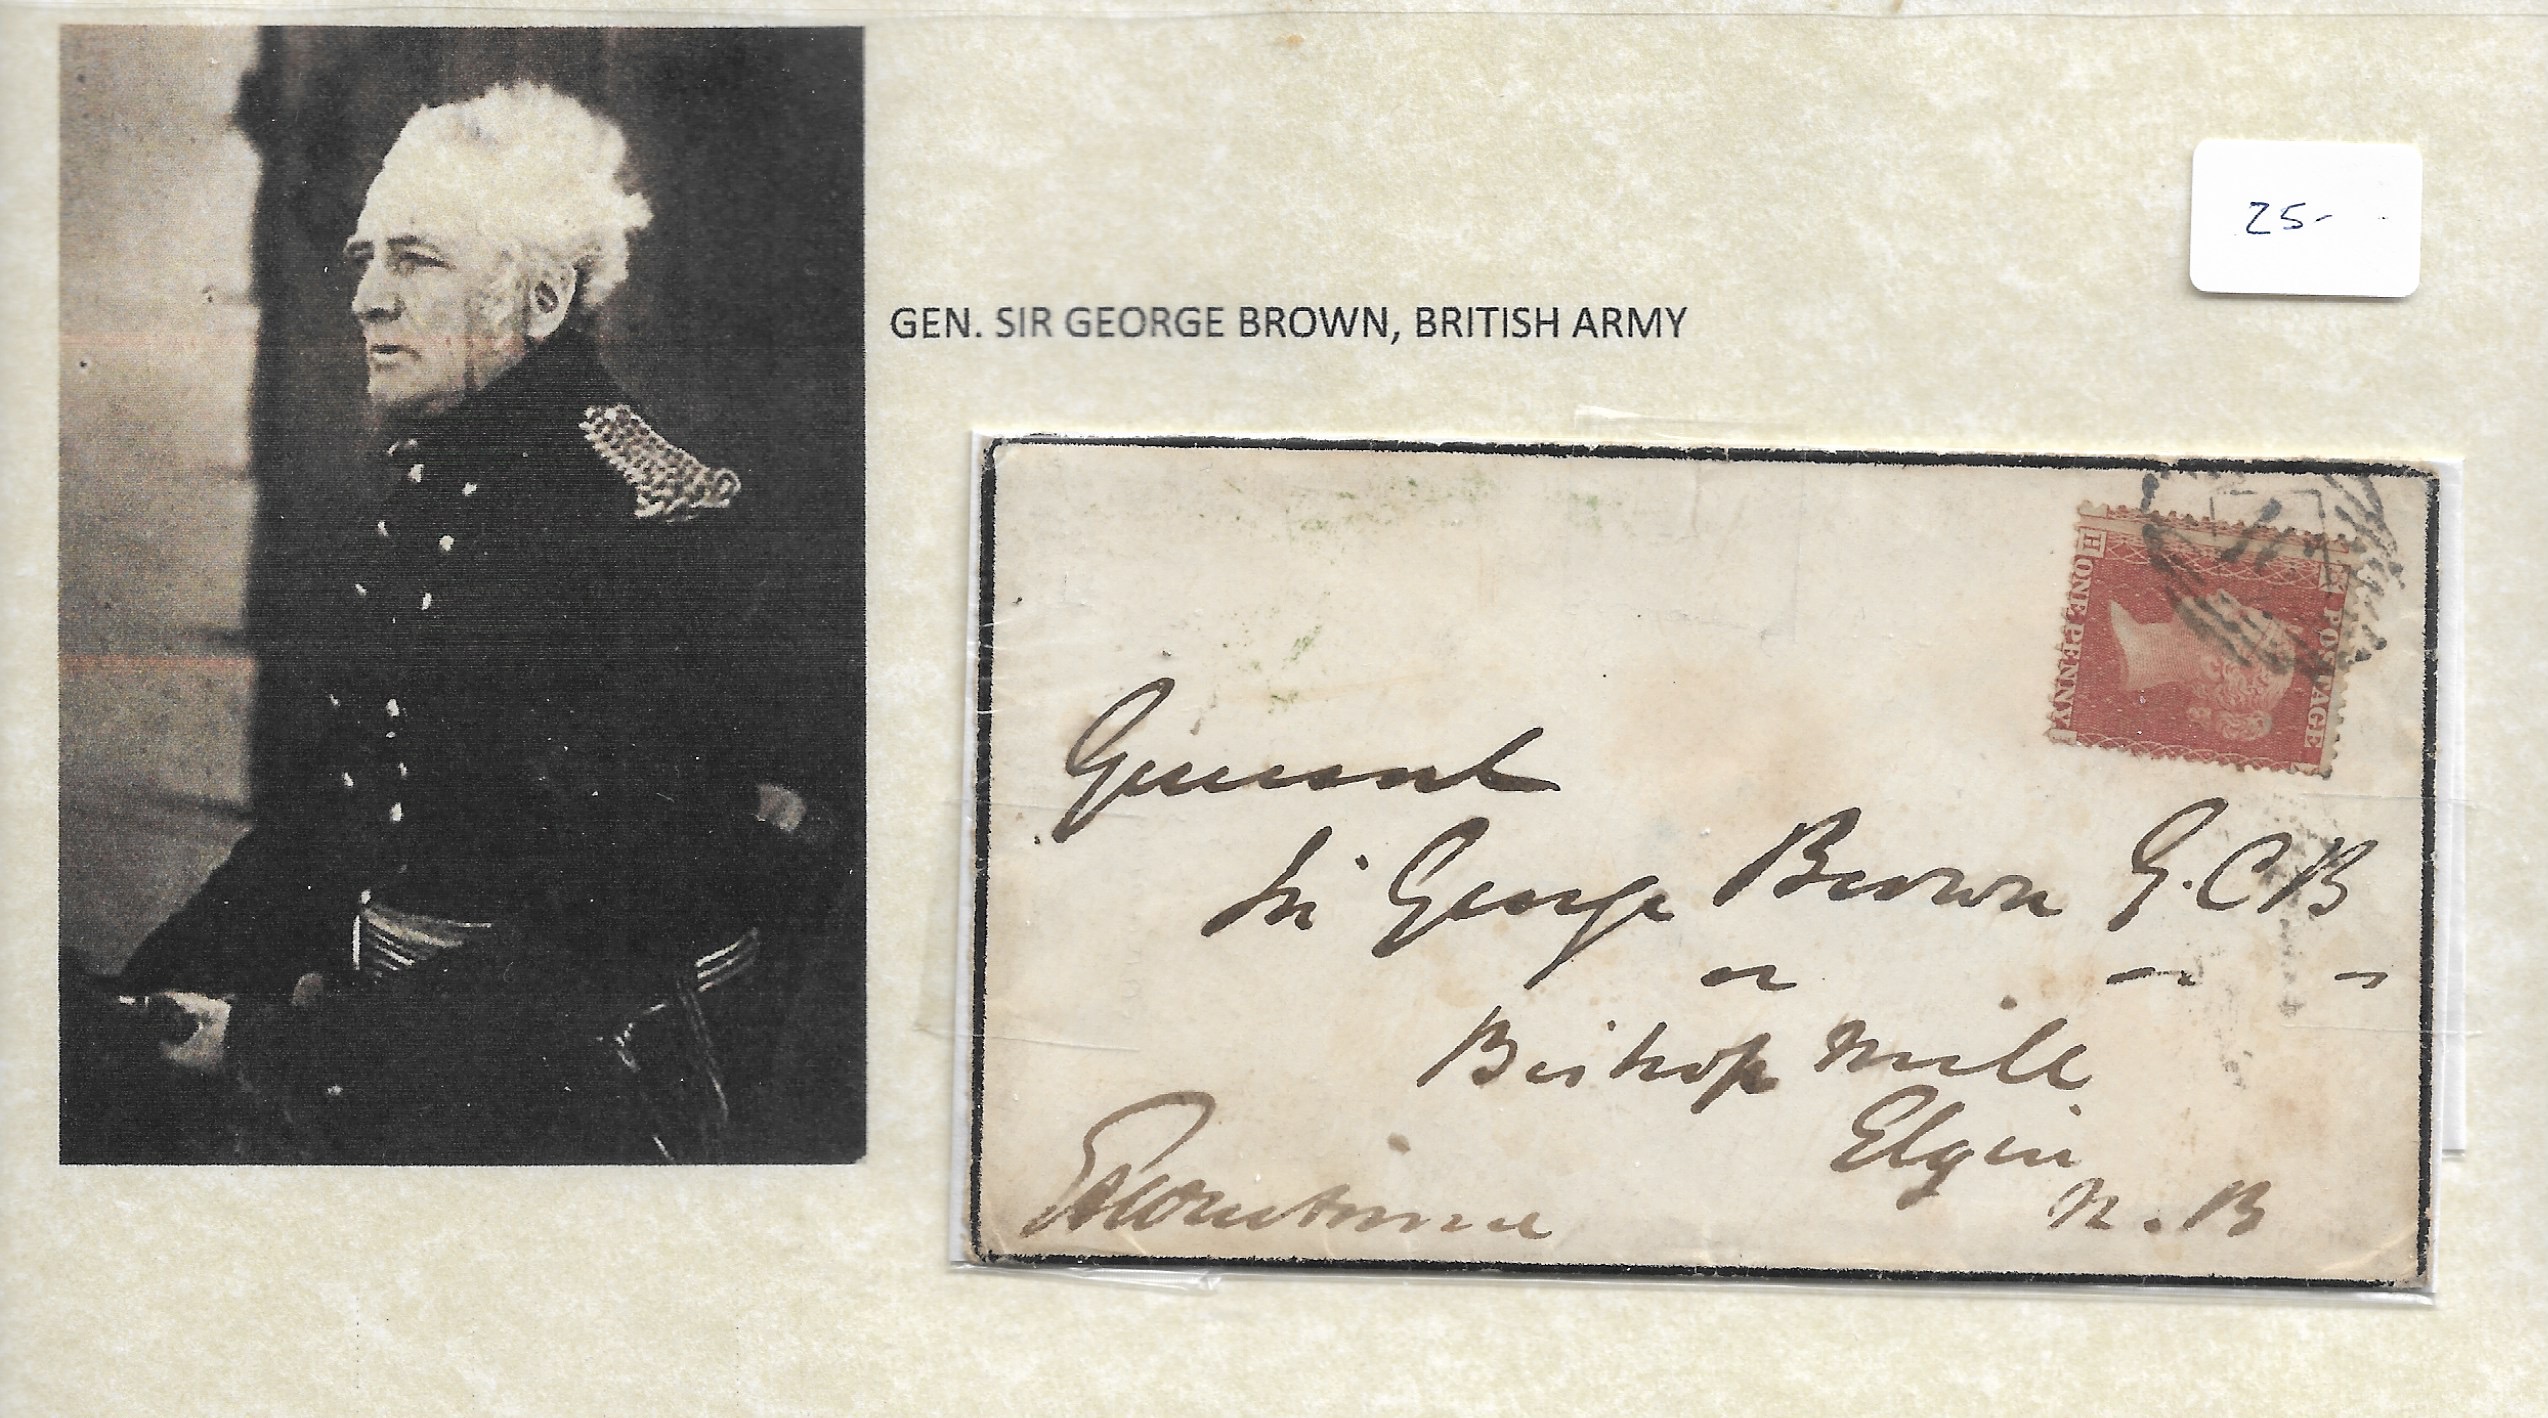 25-
GEN. SIR GEORGE BROWN, BRITISH ARMY
H
POSTAGE
ONE PENNY
General
Sir George Brown G.C.B
Bishop Mill
Elgin
N.B